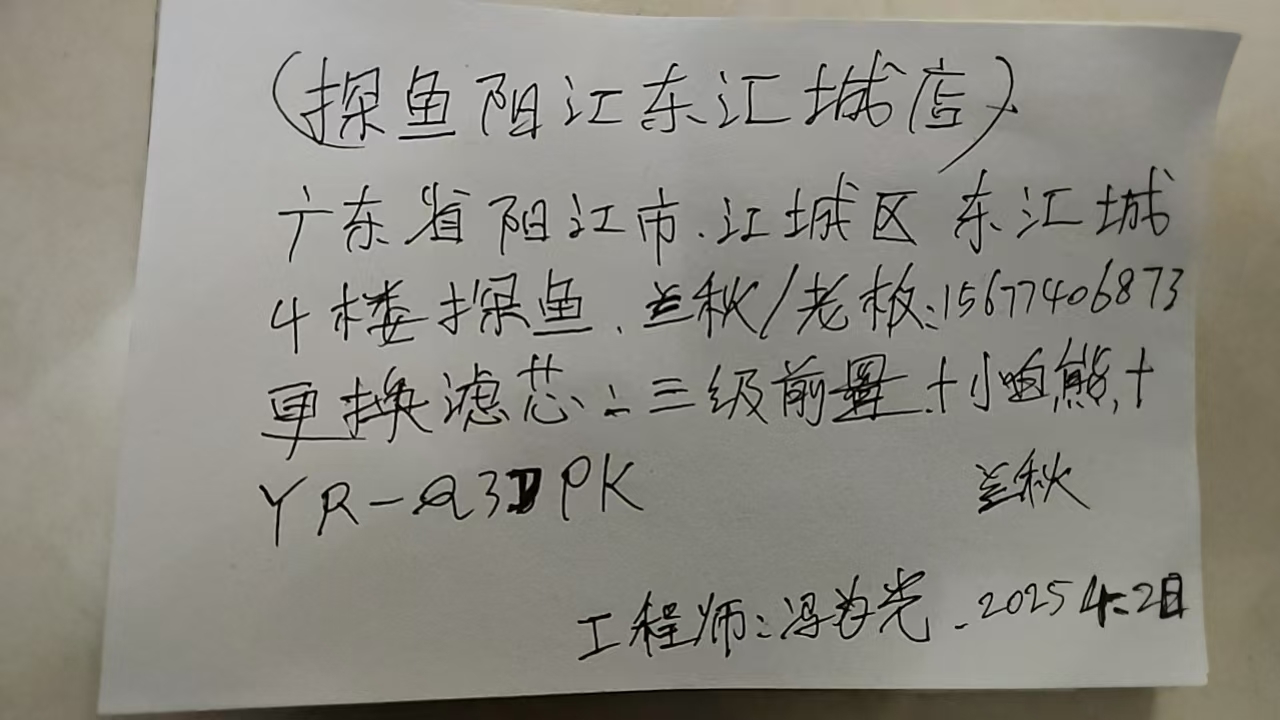 (探鱼阳江东汇城店)
广东省阳江市.江城区 东汇城
4楼探鱼、兰秋/老板:15677406873
更换滤芯:三级前置+小白熊,+
YR-Q3 PK 兰秋
工程师:冯为光. 2025 4.2日